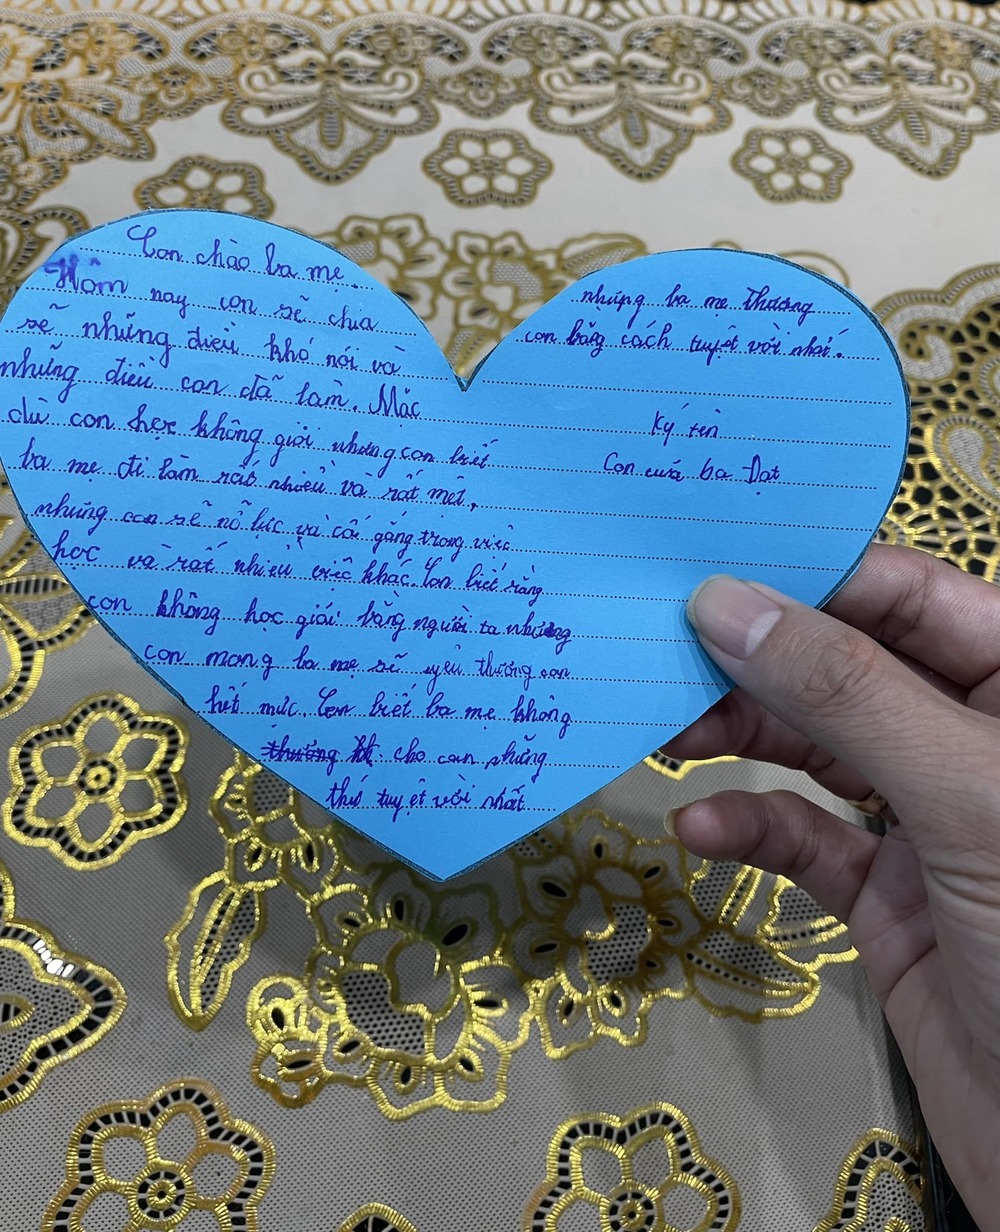 Con chào ba mẹ
Hôm nay con sẽ chia
sẽ những điều khó nói và
những điều con đã làm. Mặc
dù con học không giỏi nhưng con biết
ba mẹ đi làm rất nhiều và rất mệt,
nhưng con sẽ nỗ lực và cố gắng trong việc
học và rất nhiều việc khác. Con biết rằng
con không học giỏi bằng người ta nhưng
con mong ba mẹ sẽ yêu thương con
hết mức. Con biết ba mẹ không
cho con những
thứ tuyệt vời nhất
nhưng ba mẹ thương
con bằng cách tuyệt vời nhất.
Ký tên
Con của ba Đạt